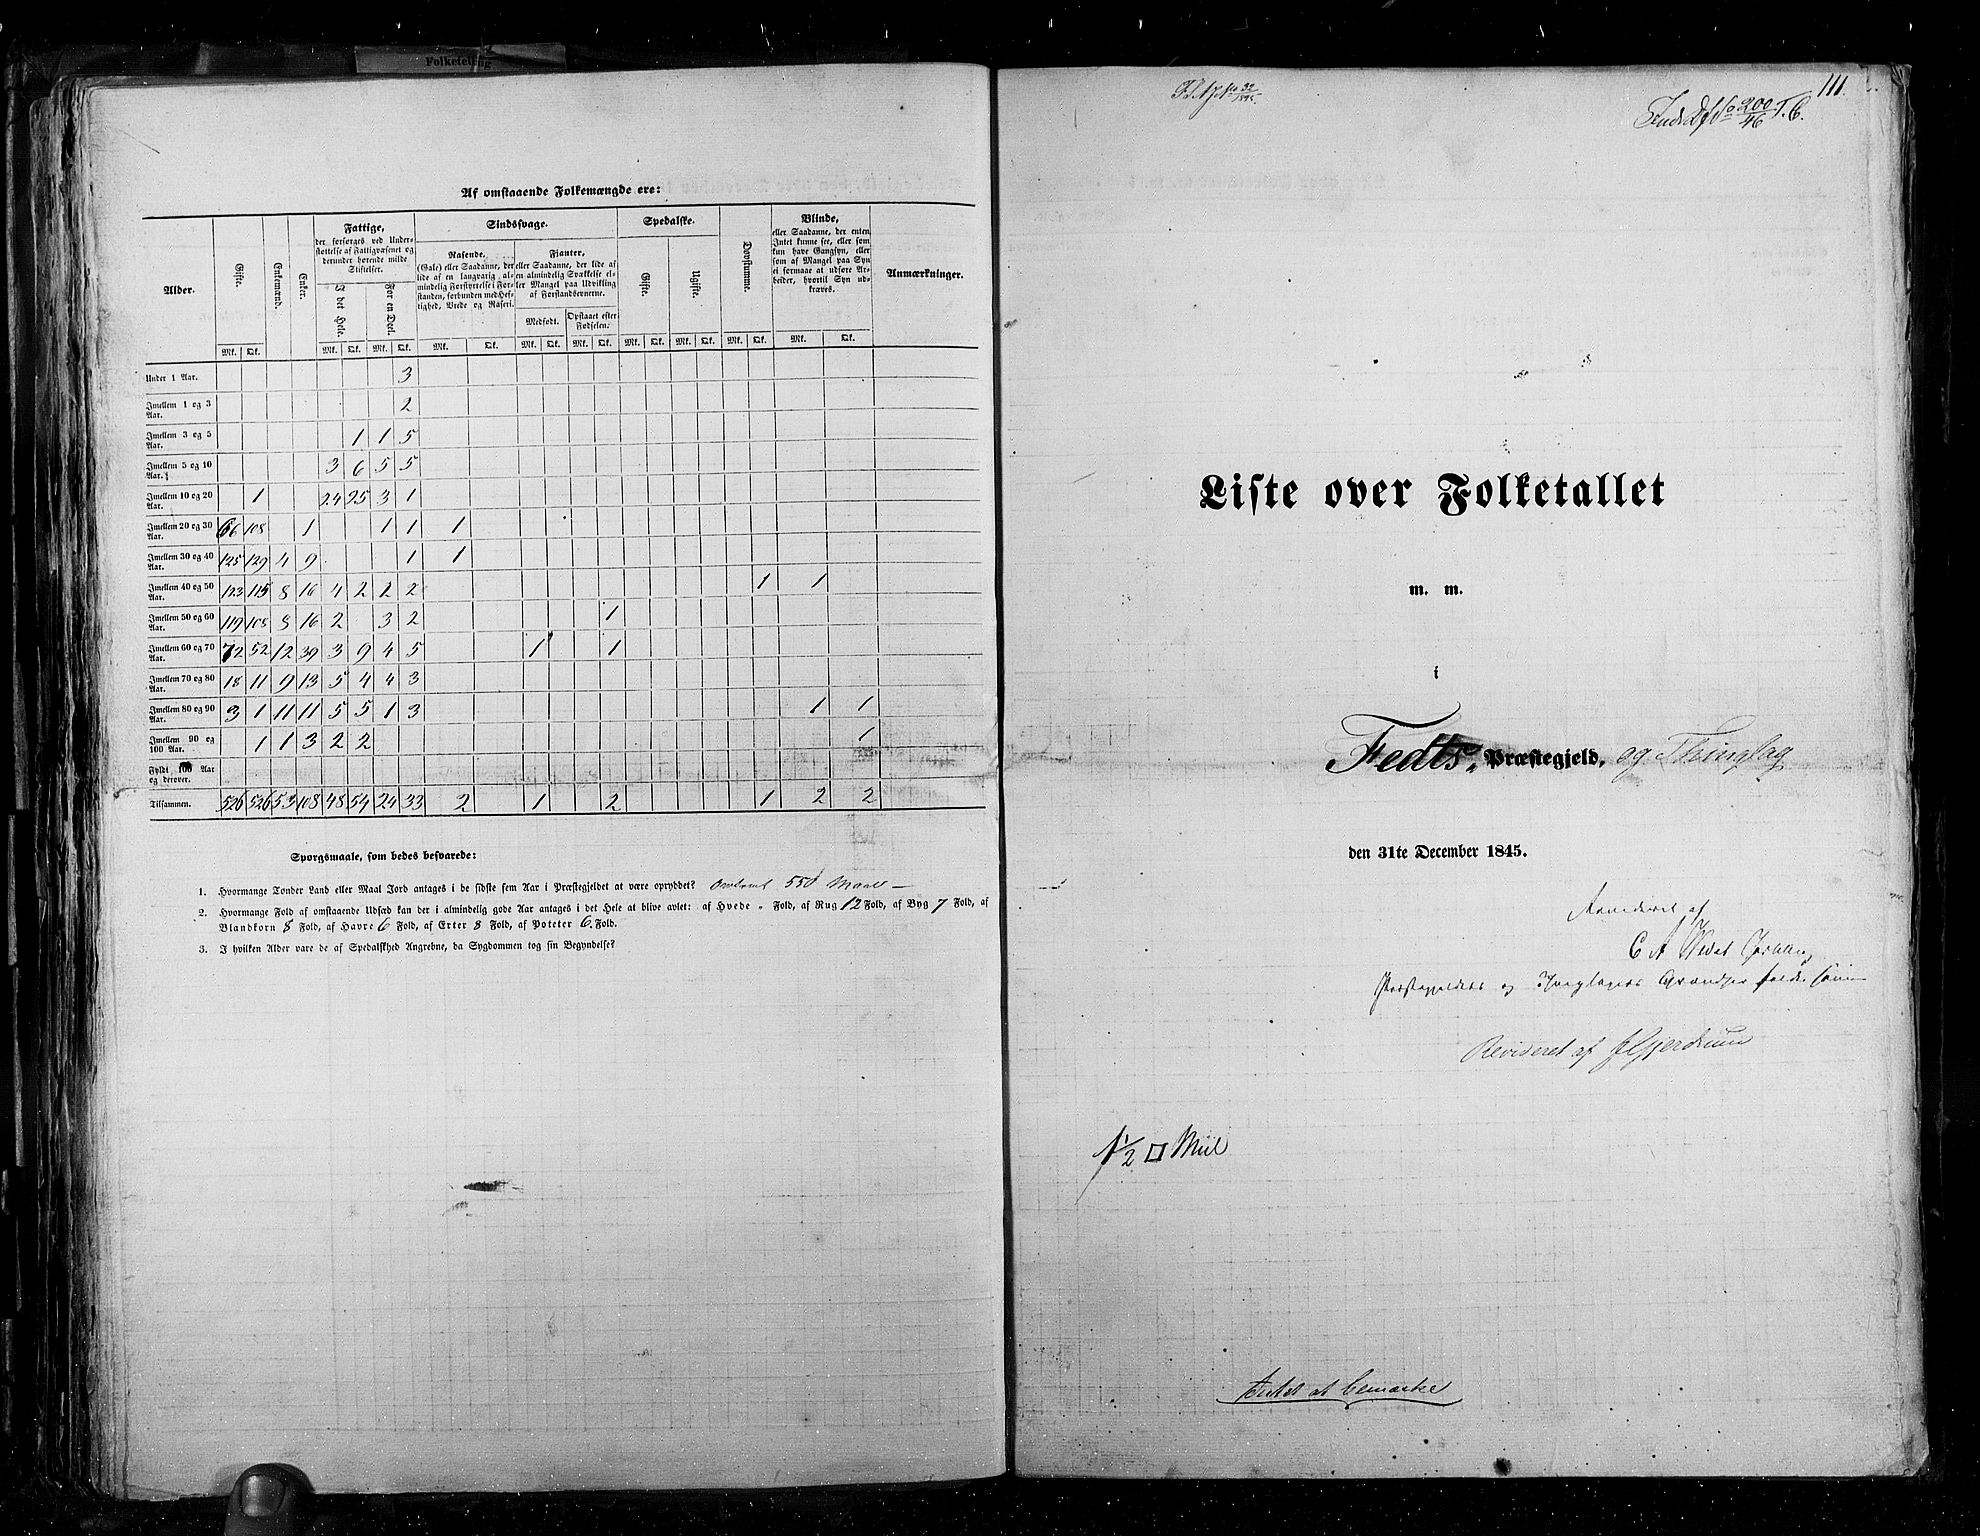 Folketelling
Af omstaaende Folkemængde ere:
Alder.
Gifte.
Enkemænd.
Enker.
Fattige,
der forsørges ved Under-
støttelse af Fattigvæsenet og
derunder hørende milde
Stiftelser.
I det Hele.
For en Deel.
Sindssvage.
Rasende.
(Gale) eller Saadanne, der
lide af en langvarig al-
mindelig Forstyrrelse i For-
standen, forbunden med Hef-
tighed, Vrede og Raseri.
Fjanter,
eller Saadanne, der lide af
en almindelig Svækkelse el-
ler Mangel paa Udvikling
af Forstandsevnerne.
Medfødt.
Opstaaet efter
Fødselen.
Spedalske.
Gifte.
Ugifte.
Døvstumme.
Blinde,
eller Saadanne, der enten
Intet kunne see, eller som
kun have Gangsyn, eller
som af Mangel paa Syn
ei formaae at udføre Ar-
beider, hvortil Syn ud-
kræves.
Anmærkninger.
Mk. Qk. Mk. Qk. Mk. Qk. Mk. Qk. Mk. Qk. Mk. Qk. Mk. Qk. Mk. Qk. Mk. Qk. Mk. Qk.
Under 1 Aar. 3
Imellem 1 og 3 Aar. 2
Imellem 3 og 5 Aar. 1 1 5
Imellem 5 og 10 Aar. 3 6 5 5
Imellem 10 og 20 Aar. 1 24 25 3 1
Imellem 20 og 30 Aar. 66 108 1 1 1 1
Imellem 30 og 40 Aar. 125 129 4 9 1 1
Imellem 40 og 50 Aar. 123 115 8 16 4 2 2 2 1 1
Imellem 50 og 60 Aar. 119 108 8 16 2 3 2 1
Imellem 60 og 70 Aar. 72 52 12 39 3 9 4 5 1 1
Imellem 70 og 80 Aar. 18 11 9 13 5 4 4 3
Imellem 80 og 90 Aar. 3 1 11 11 5 5 1 3 1 1
Imellem 90 og 100 Aar. 1 1 3 2 2 1
Fyldt 100 Aar og derover.
Tilsammen. 526 526 53 108 48 54 24 33 2 1 2 1 2 2
Spørgsmaale, som bedes besvarede:
1. Hvormange Tønder Land eller Maal Jord antages i de sidste fem Aar i Præstegjeldet at være opryddet? Omtrent 550 Maal –
2. Hvormange Fold af omstaaende Udsæd kan der i almindelig gode Aar antages i det Hele at blive avlet: af Hvede " Fold, af Rug 12 Fold, af Byg 7 Fold, af
Blandkorn 8 Fold, af Havre 6 Fold, af Erter 8 Fold, af Poteter 6. Fold.
3. I hvilken Alder vare de af Spedalskhed Angrebne, da Sygdommen tog sin Begyndelse?
111.
200/46 T. C.
Liste over Folketallet
m. m.
i
Fedts. Præstegjeld, og Thinglag
den 31te December 1845.
af
C A
Præstegjeldets og Thinglagets Grændser
Revideret af Gjerdrum
1 1/2 □ Miil
Intet at bemærke